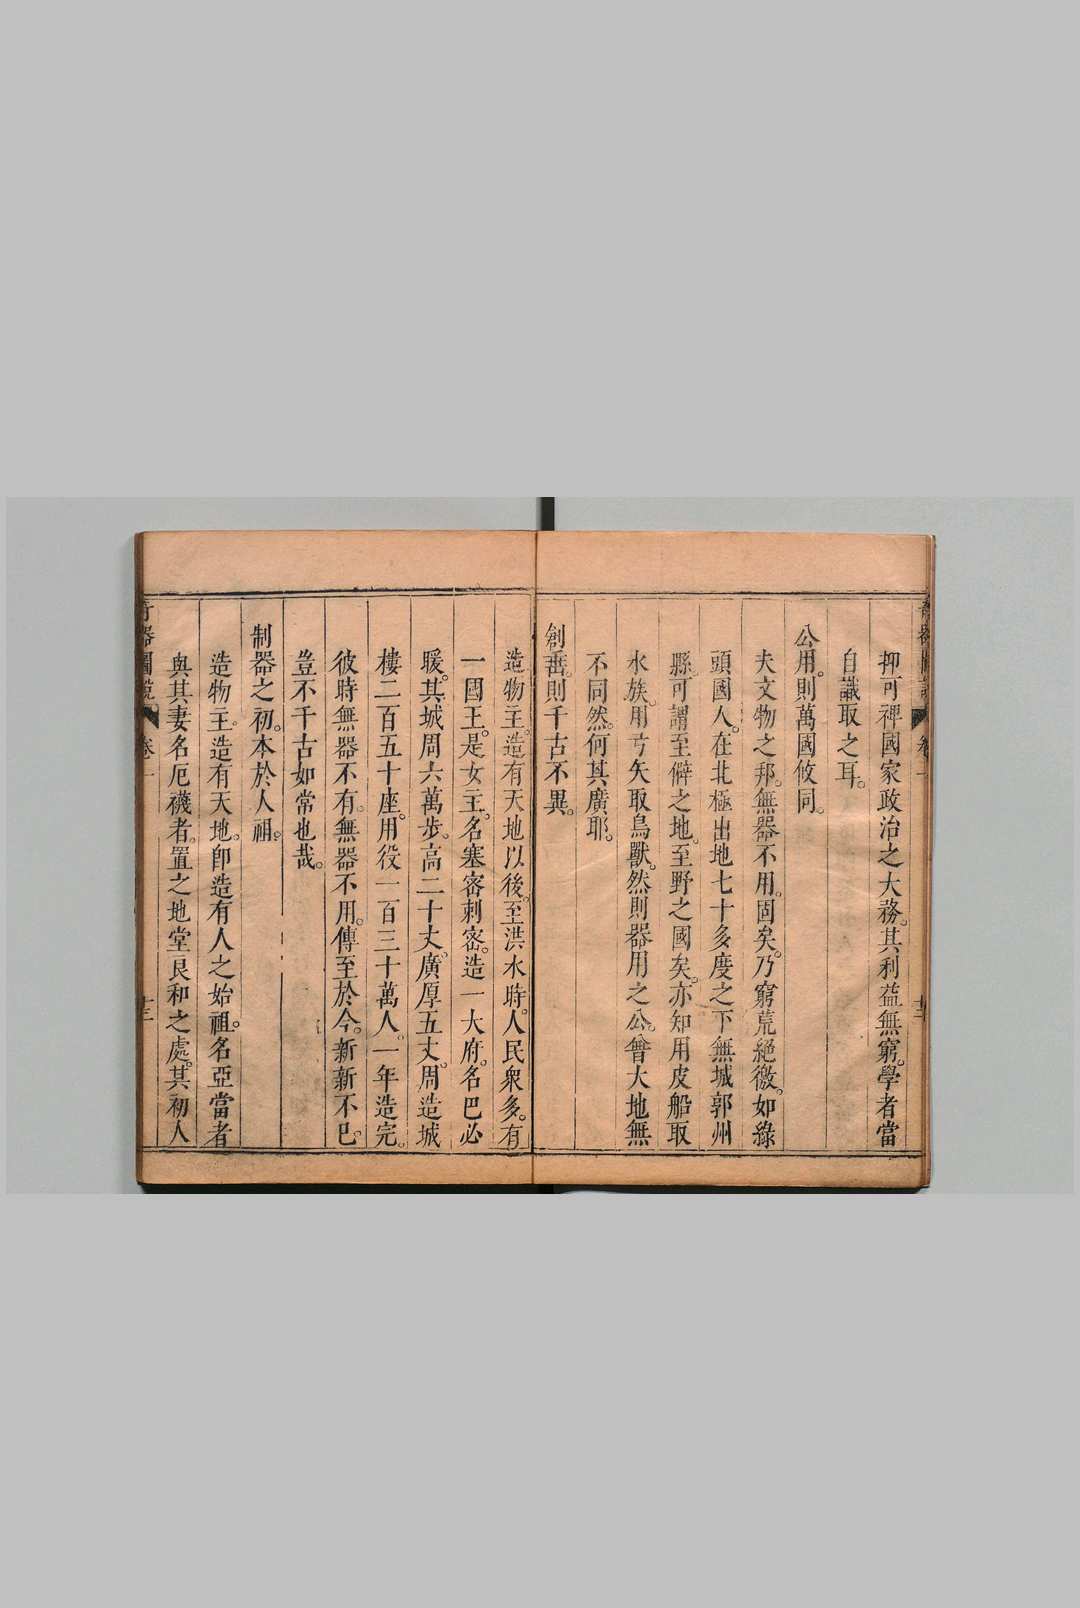 抑可裨國家政治之大務。其利益無窮。學者當
自識取之耳。
公用。則萬國攸同。
夫文物之邦。無器不用。固矣。乃窮荒絕徼。如綠
頭國人。在北極出地七十多度之下無城郭州
縣。可謂至僻之地。至野之國矣。亦知用皮船取
水族。用弓矢取鳥獸。然則器用之公。會大地無
不同然。何其廣耶。
創垂。則千古不異。
造物主。造有天地以後。至洪水時。人民衆多。有
一國王。是女主。名塞密剌密。造一大府。名巴必
暖。其城周六萬步。高二十丈。廣厚五丈。周造城
樓二百五十座。用役一百三十萬人。一年造完。
彼時無器不有。無器不用。傳至於今。新新不已。
豈不千古如常也哉。
制器之初。本於人祖。
造物主。造有天地。卽造有人之始祖。名亞當者
與其妻名厄襪者。置之地堂良和之處。其初人
奇器圖說 卷一 十三